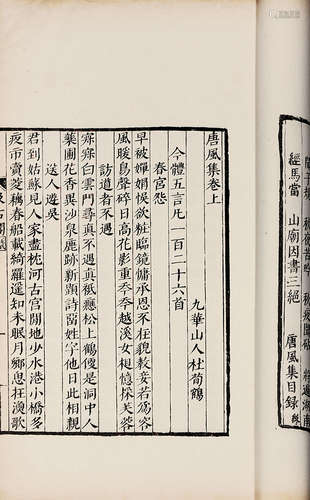 經馬當 山廟因書三絕
唐風集目錄 終
唐風集卷上
九華山人杜荀鶴
今體五言凡一百二十六首
春宮怨
早被嬋娟悞欲粧臨鏡慵承恩不在貌教妾若爲容
風暖鳥聲碎日高花影重秊秊越溪女相憶採芙蓉
訪道者不遇
寂寂白雲門尋真不遇真秖應松上鶴便是洞中人
藥圃花香異沙泉鹿跡新題詩留姓字他日此相親
送人遊吳
君到姑蘇見人家盡枕河古宮閒地少水港小橋多
夜市賣菱藕春船載綺羅遙知未眠月鄉思在漁歌